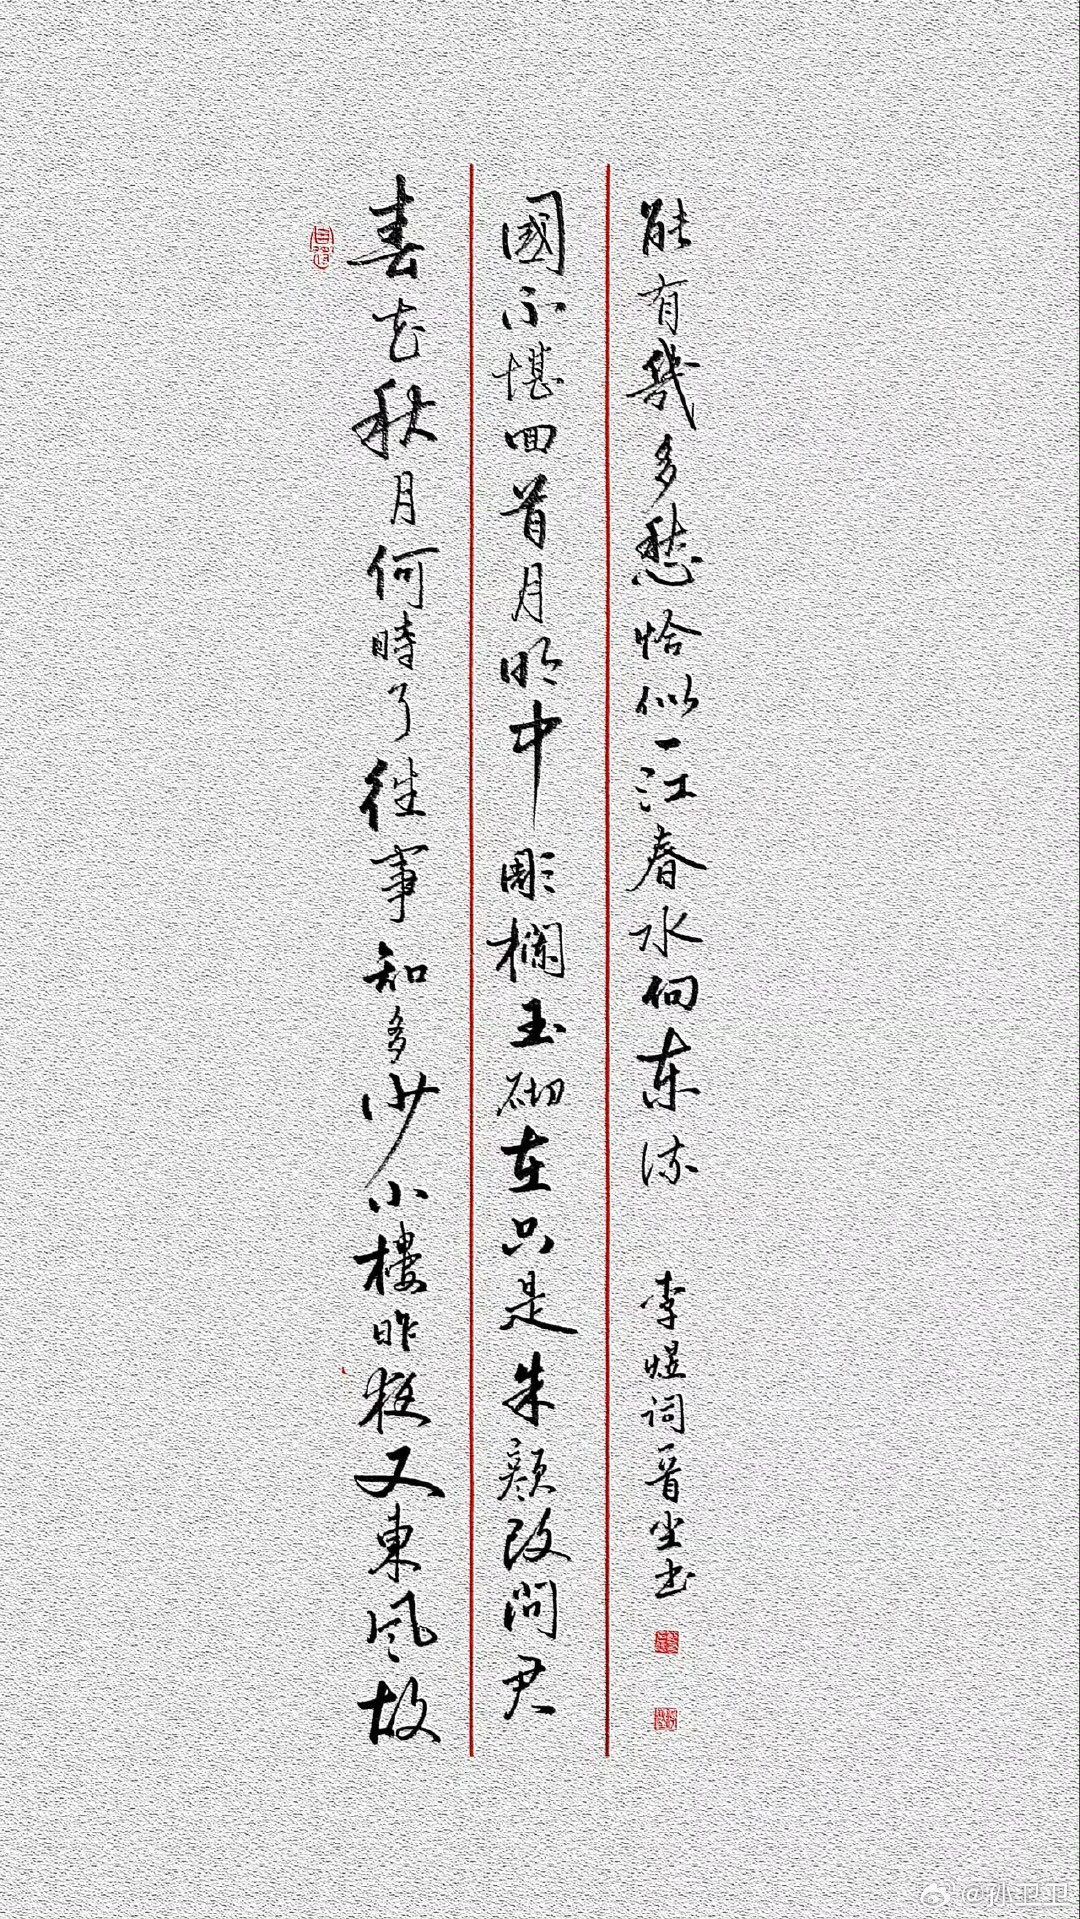 春花秋月何時了往事知多少小樓昨夜又東風故
國不堪回首月明中彫欄玉砌在只是朱顏改問君
能有幾多愁恰似一江春水向东流 李煜词晋书
@孙卫卫